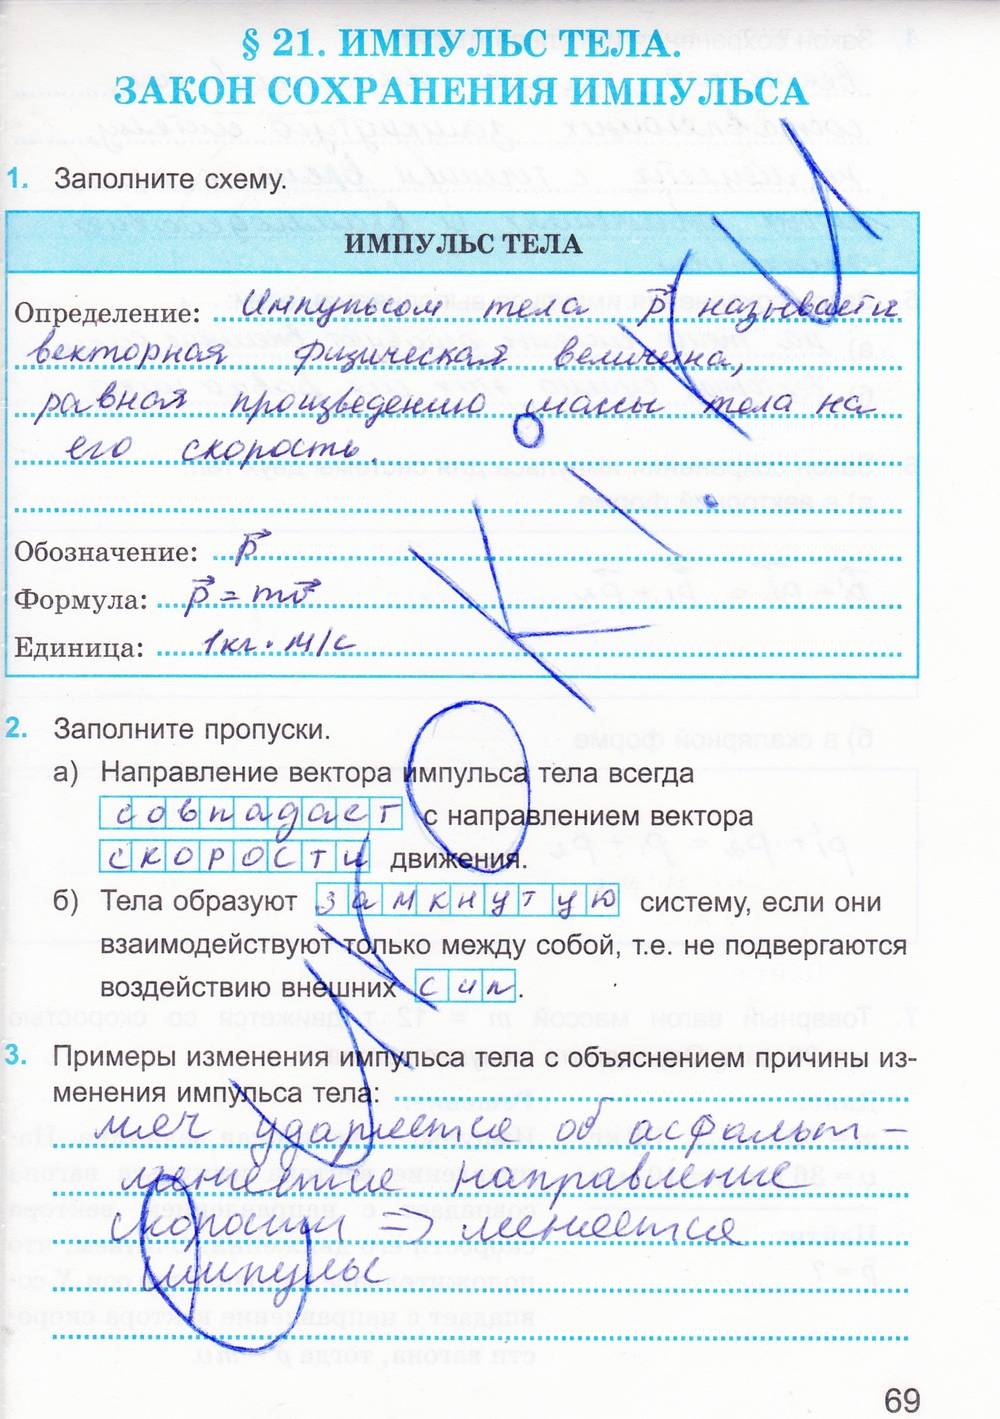 § 21. ИМПУЛЬС ТЕЛА.
ЗАКОН СОХРАНЕНИЯ ИМПУЛЬСА
1. Заполните схему.
ИМПУЛЬС ТЕЛА
Определение: Импульсом тела p⃗ называют
векторная физическая величина,
равная произведению массы тела на
его скорость.
Обозначение: p⃗
Формула: p⃗ = mv⃗
Единица: 1кг · м/с
2. Заполните пропуски.
а) Направление вектора импульса тела всегда
совпадает с направлением вектора
скорости движения.
б) Тела образуют замкнутую систему, если они
взаимодействуют только между собой, т.е. не подвергаются
воздействию внешних сил.
3. Примеры изменения импульса тела с объяснением причины из-
менения импульса тела:
мяч ударяется об асфальт –
меняется направление
скорости ⇒ меняется
импульс
69